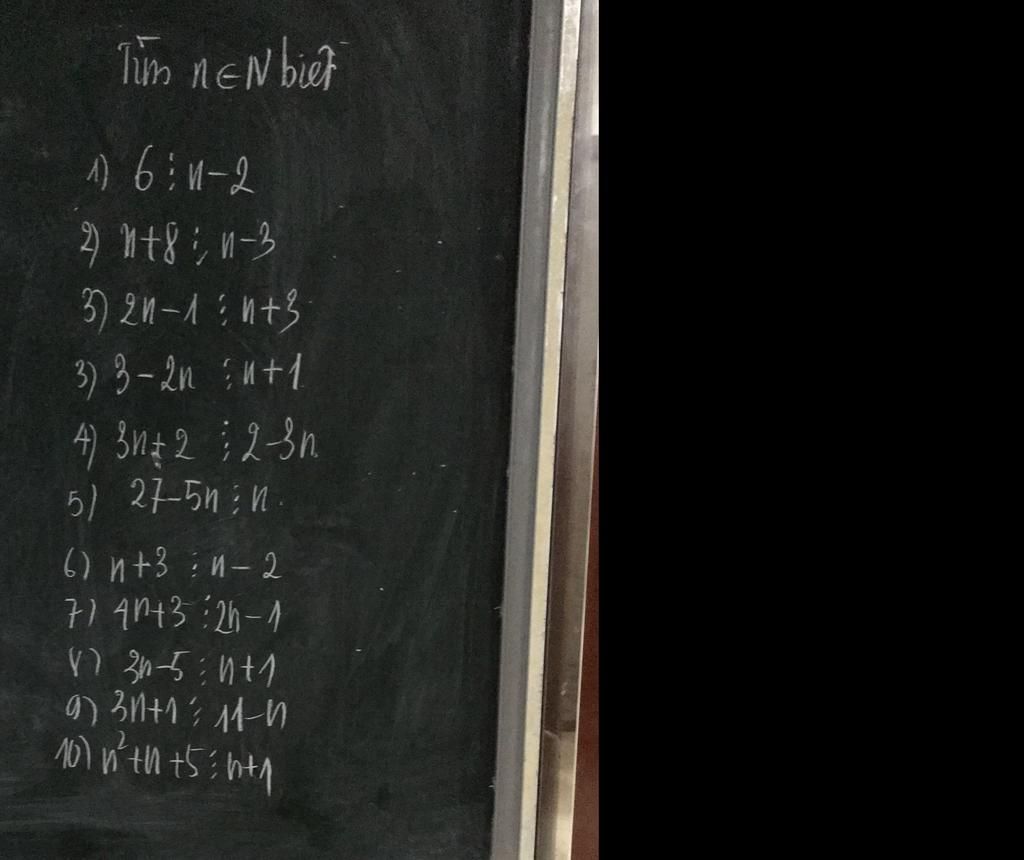 Tìm n ∈ N biết
1) 6 ⋮ n-2
2) n+8 ⋮ n-3
3) 2n-1 ⋮ n+3
3) 3-2n ⋮ n+1
4) 3n+2 ⋮ 2-3n
5) 27-5n ⋮ n
6) n+3 ⋮ n-2
7) 4n+3 ⋮ 2n-1
8) 3n-5 ⋮ n+1
9) 3n+1 ⋮ 11-n
10) n²+n+5 ⋮ n+1